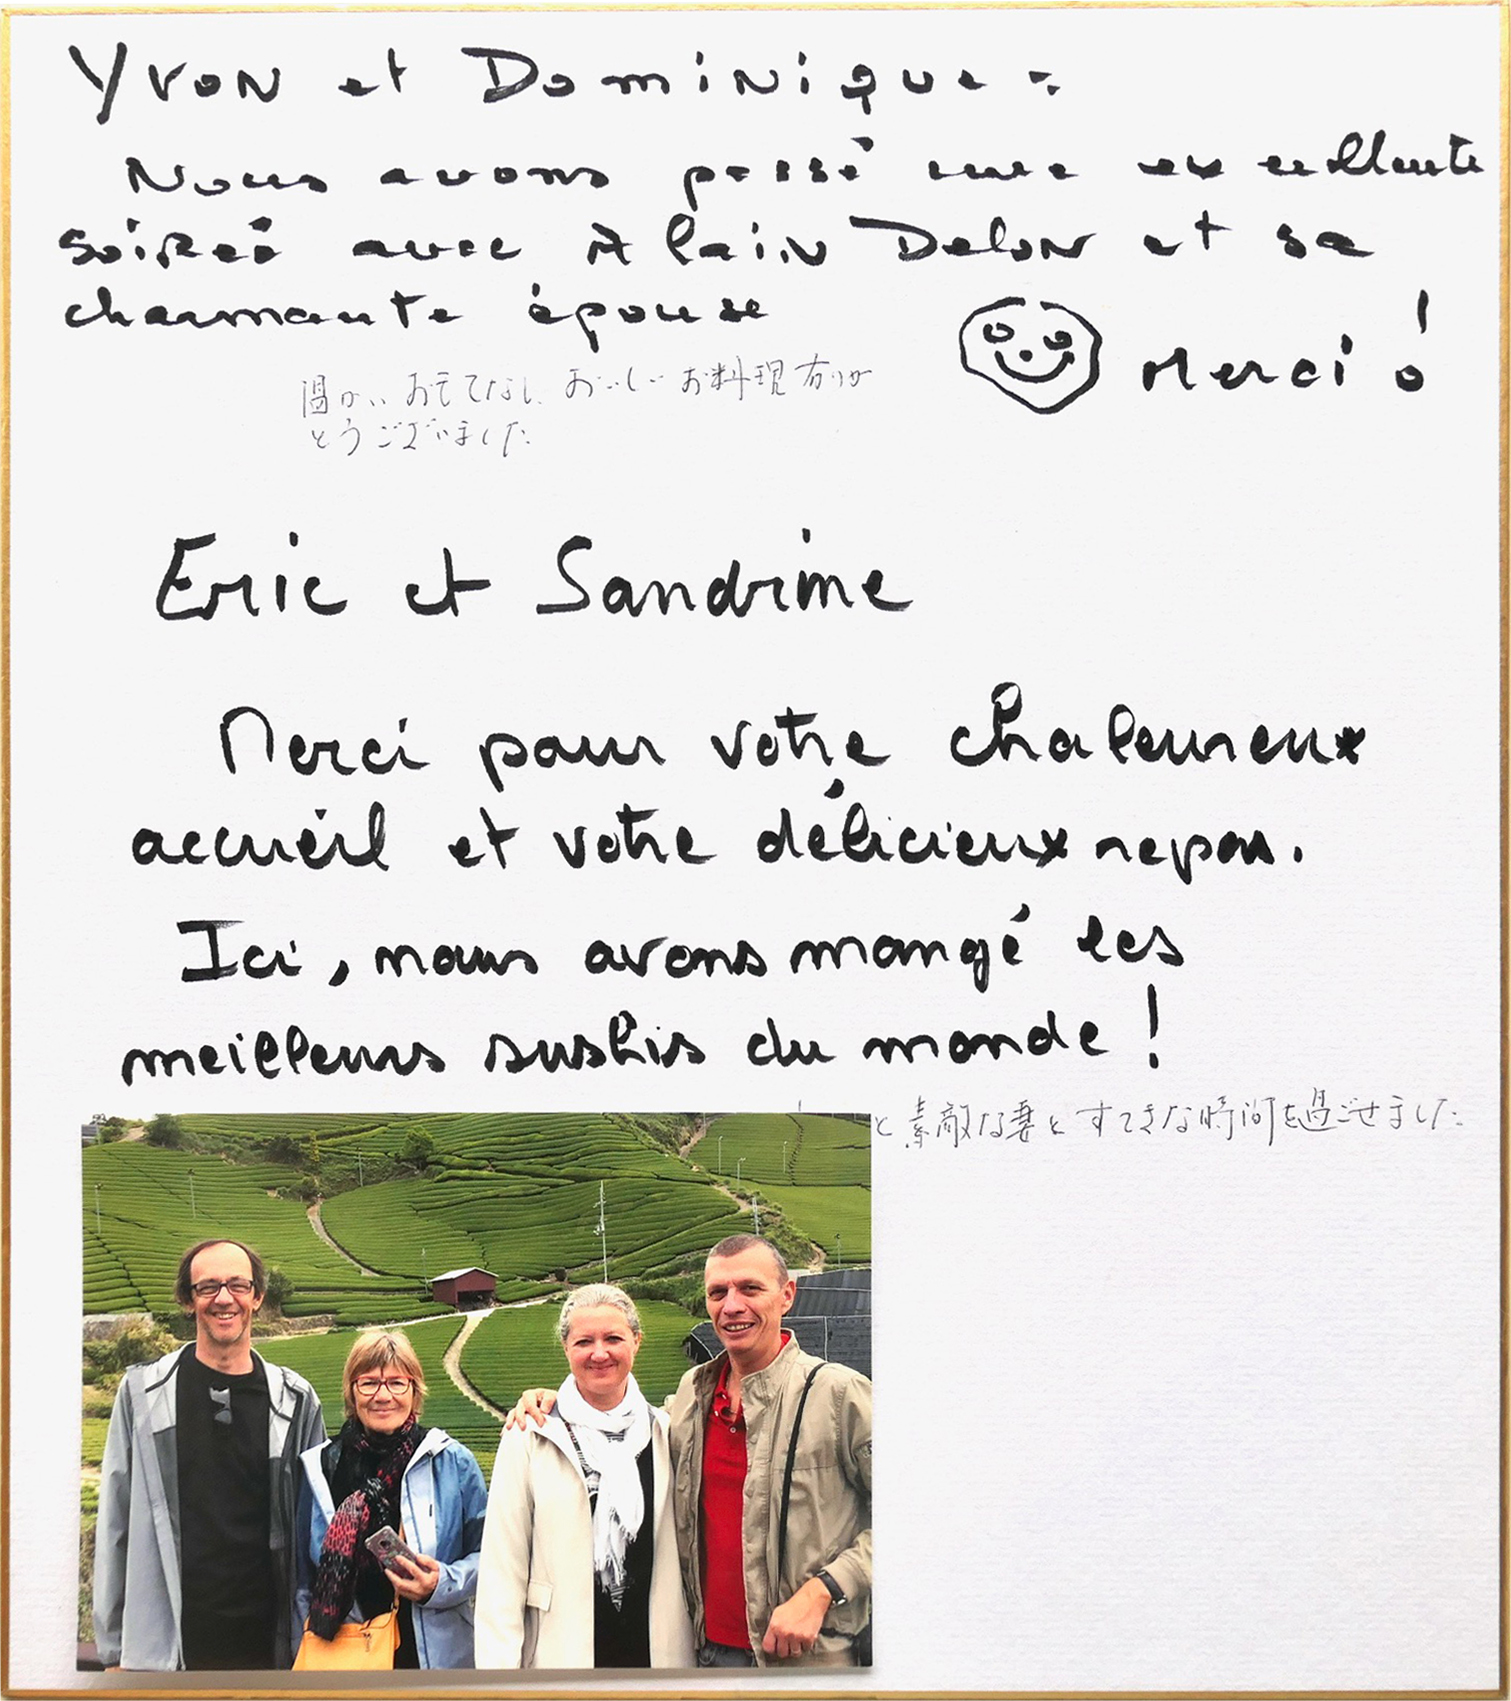 Yvon et Dominique :
Nous avons passé une excellente
soirée avec Alain Delon et sa
charmante épouse
Merci !
温かいおもてなし、おいしいお料理有りが
とうございました
Eric et Sandrine
Merci pour votre chaleureux
accueil et votre délicieux repas.
Ici, nous avons mangé les
meilleurs sushis du monde !
と素敵な妻とすてきな時間を過ごせました